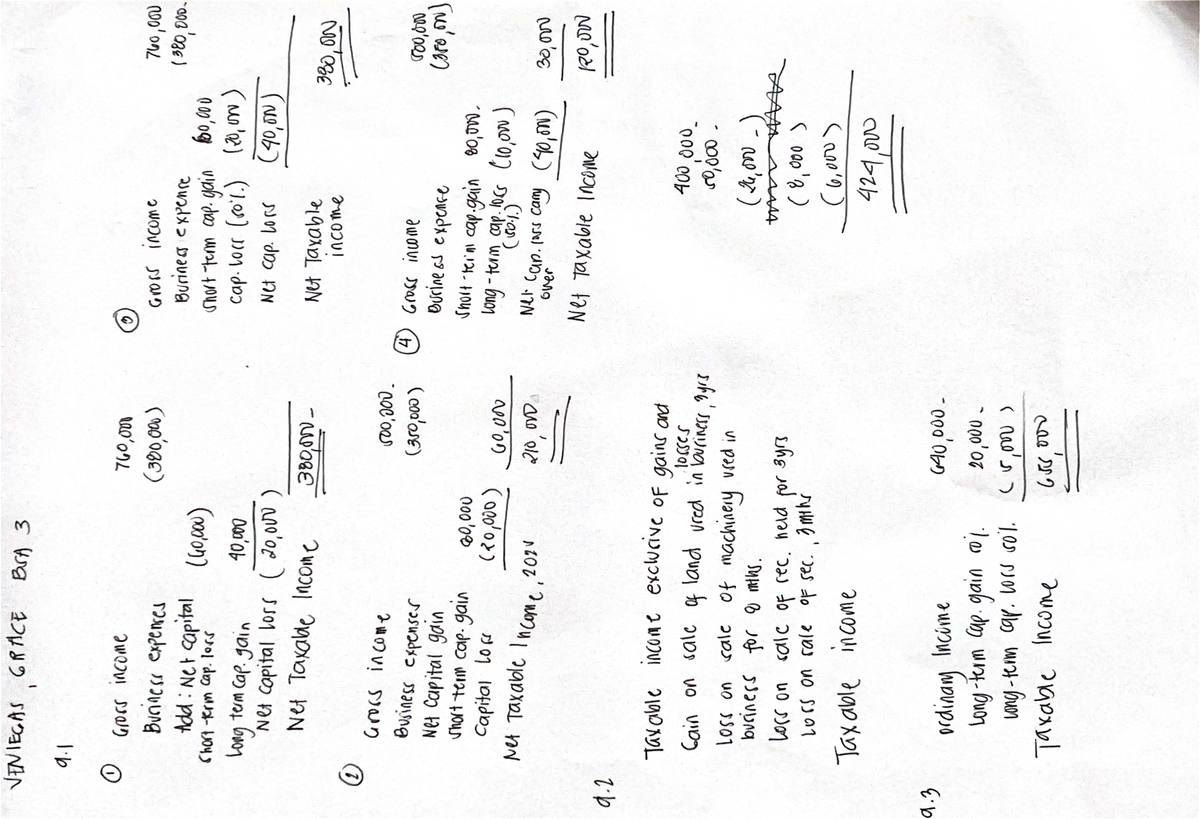 VENIEGAS, GRACE BSA 3
9.1
①
Gross income 760,000
Business expenses (380,000)
Add: Net capital
short-term cap. loss (60,000)
Long term cap. gain 40,000
Net capital loss (20,000)
Net Taxable Income 380,000-
②
Gross income 500,000-
Business expenses (350,000)
Net capital gain
short-term cap. gain 80,000
Capital Loss (20,000) 60,000
Net Taxable Income, 2024 210,000
③
Gross income 760,000
Business expense (380,000-
short-term cap. gain 60,000
cap. loss (50%) (20,000)
Net cap. loss (40,000)
Net Taxable 380,000
income
④
Gross income 500,000
Business expense (350,000)
short-term cap. gain 80,000-
long-term cap. loss (10,000)
(50%)
Net cap. loss carry (40,000) 30,000
over
Net Taxable Income 120,000
9.2
Taxable income exclusive of gains and 400,000-
losses
Gain on sale of land used in business, 3yrs 50,000-
Loss on sale of machinery used in
business for 9 mths. (26,000-)
Loss on sale of sec. held for 3yrs (8,000)
Loss on sale of sec., 3mths (6,000)
Taxable income 424,000
9.3
ordinary Income 640,000-
Long-term cap. gain 50%. 20,000-
Long-term cap. loss 50%. (5,000)
Taxable Income 655,000